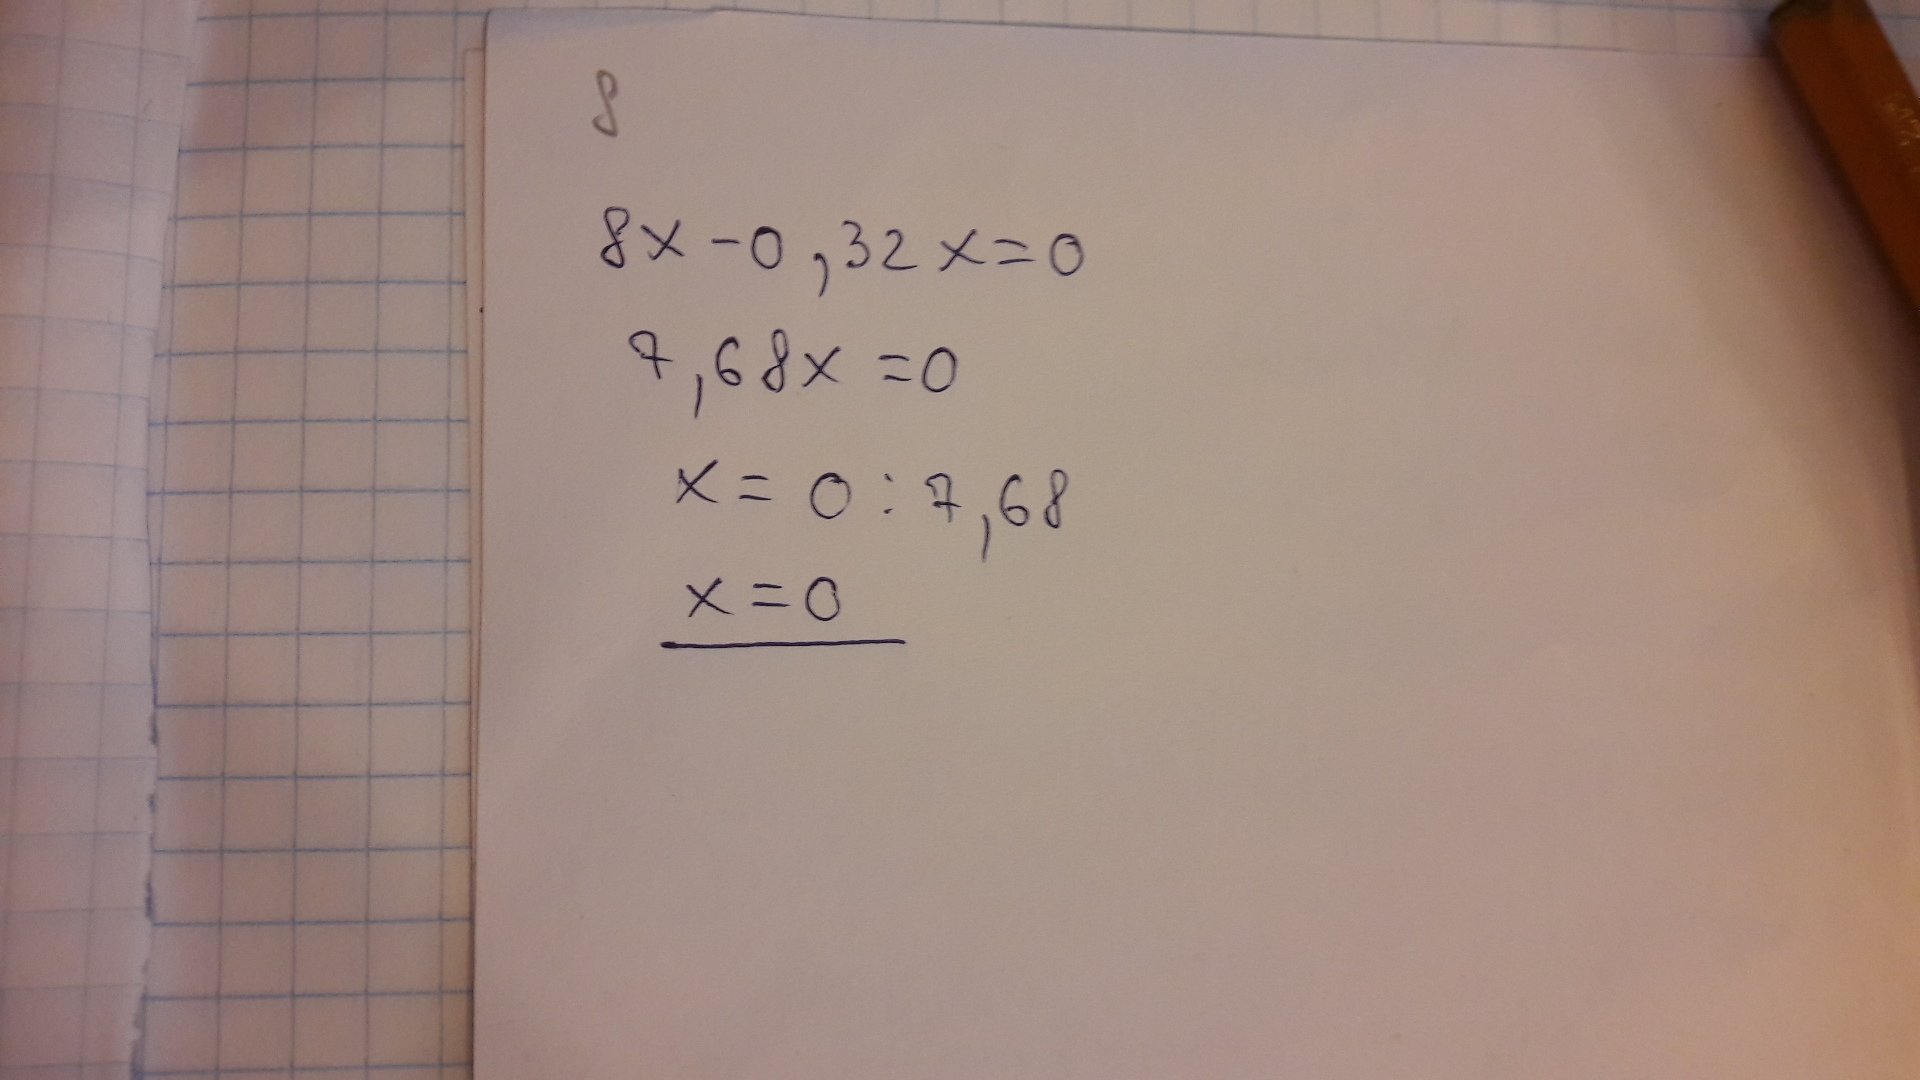 8
8x-0,32x=0
7,68x=0
x=0:7,68
x=0